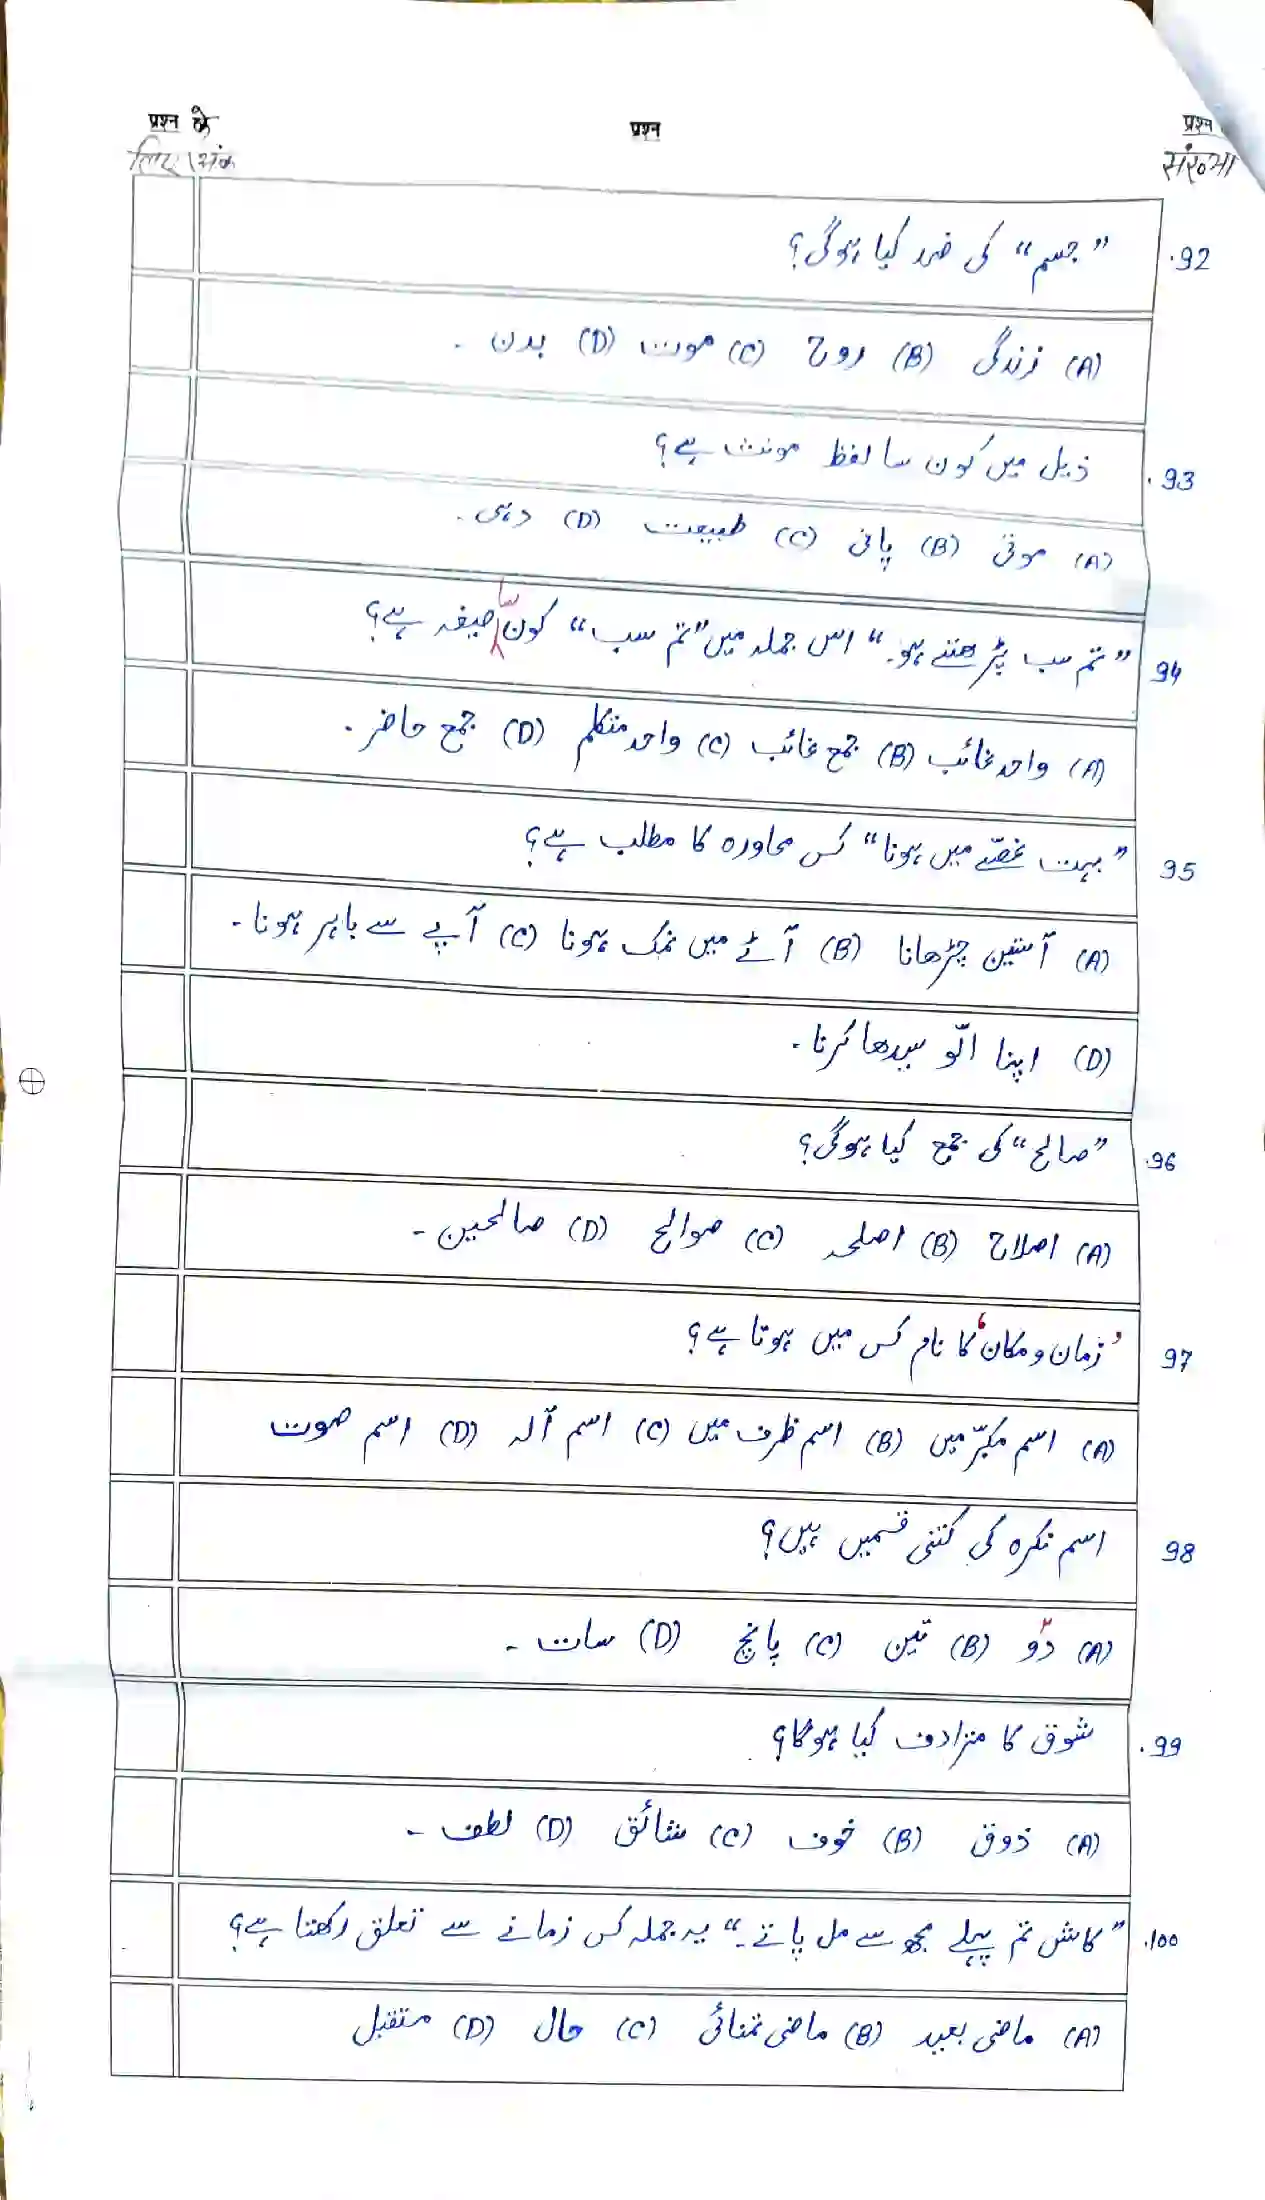 प्रश्न के प्रश्न प्रश्न
लिए अंक संख्या
92. ”جسم“ کی ضد کیا ہوگی؟
(A) زندگی (B) روح (C) موت (D) بدن ۔
93. ذیل میں کون سا لفظ مونث ہے؟
(A) موتی (B) پانی (C) طبیعت (D) دہی ۔
94 ”تم سب پڑھتے ہو۔“ اس جملہ میں ”تم سب“ کون سا صیغہ ہے؟
(A) واحد غائب (B) جمع غائب (C) واحد متکلم (D) جمع حاضر ۔
95 ”بہت غصّے میں ہونا“ کس محاورہ کا مطلب ہے؟
(A) آستین چڑھانا (B) آٹے میں نمک ہونا (C) آپے سے باہر ہونا ۔
(D) اپنا الّو سیدھا کرنا ۔
96. ”صالح“ کی جمع کیا ہوگی؟
(A) اصلاح (B) اصلحہ (C) صوالح (D) صالحین ۔
97 ’زمان و مکان‘ کا نام کس میں ہوتا ہے؟
(A) اسم مکبّر میں (B) اسم ظرف میں (C) اسم آلہ (D) اسم صوت
98 اسم نکرہ کی کتنی قسمیں ہیں؟
(A) دو (B) تین (C) پانچ (D) سات ۔
99. شوق کا مترادف کیا ہوگا؟
(A) ذوق (B) خوف (C) شائق (D) لطف ۔
100. ”کاش تم پہلے مجھ سے مل پاتے ۔“ یہ جملہ کس زمانے سے تعلق رکھتا ہے؟
(A) ماضی بعید (B) ماضی تمنائی (C) حال (D) مستقبل